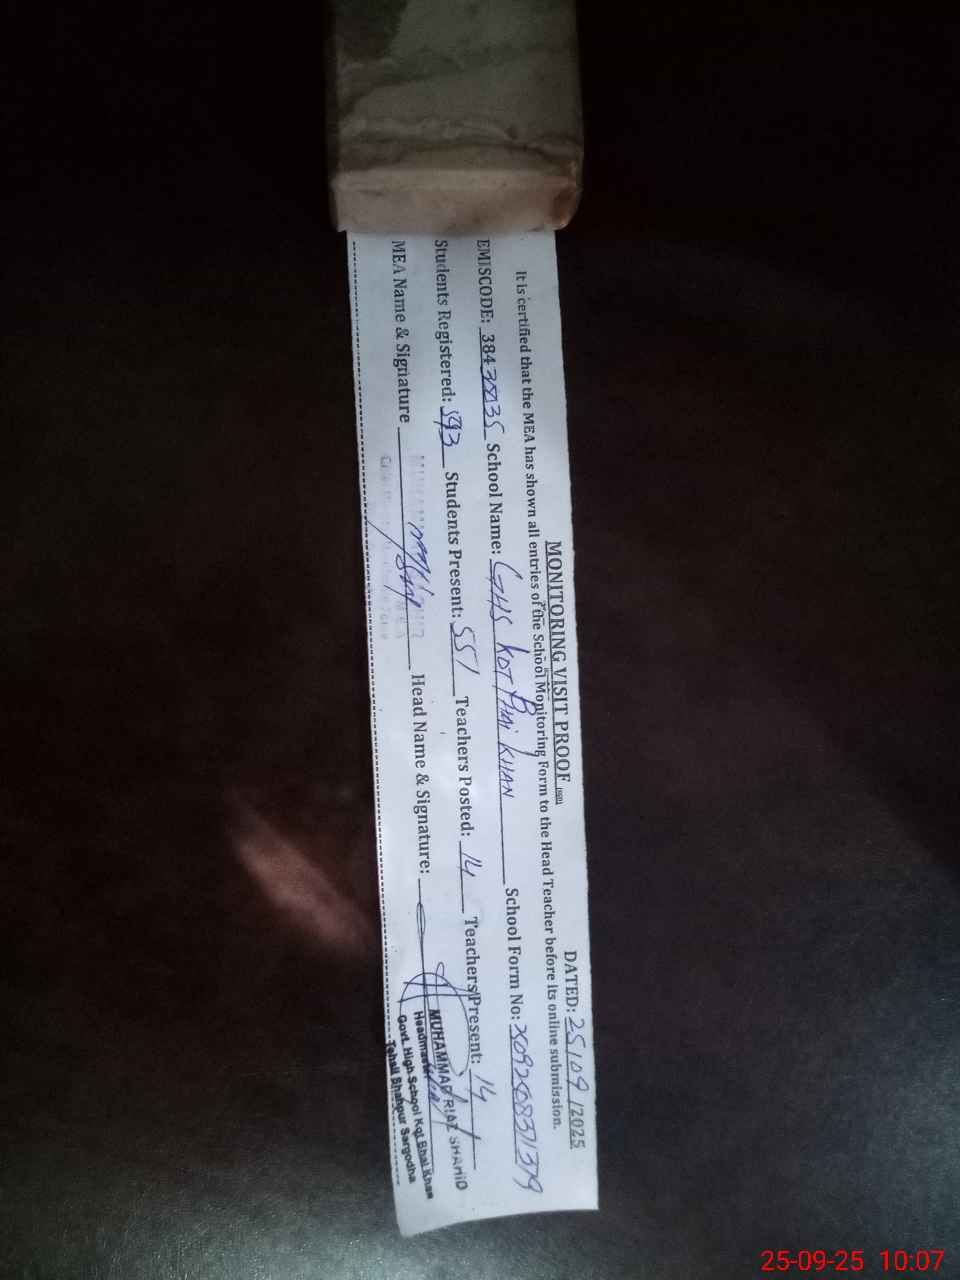 MONITORING VISIT PROOF
DATED: 25/09/2025
It is certified that the MEA has shown all entries of the School Monitoring Form to the Head Teacher before its online submission.
EMISCODE: 38430035 School Name: GHS KOT BHAI KHAN School Form No:
Students Registered: 593 Students Present: 551 Teachers Posted: 14 Teachers Present: 14
MEA Name & Signature Head Name & Signature:
MUHAMMAD RIAZ SHAHID
Headmaster
Govt. High School Kot Bhai Khan
Tehsil Shahpur Sargodha
25-09-25 10:07